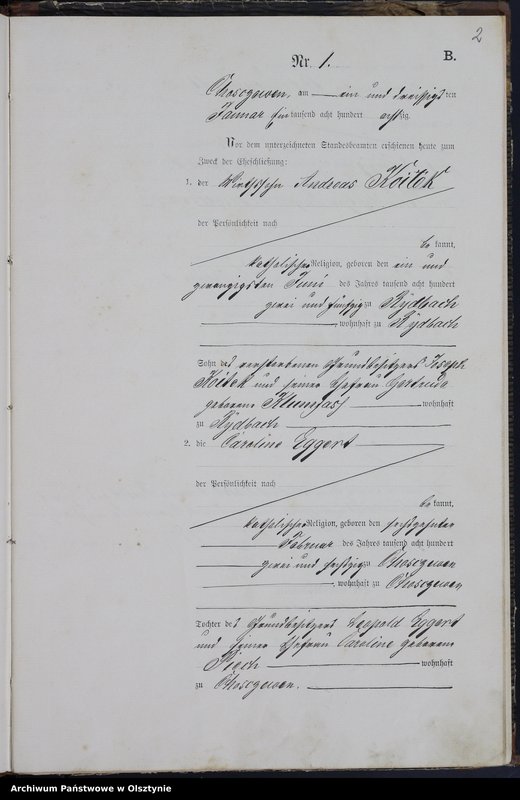 2
Nr. 1. B.
am ein und dreißigsten
Januar tausend acht hundert achtzig
Vor dem unterzeichneten Standesbeamten erschienen heute zum
Zweck der Eheschließung:
1. der Wirthssohn Andreas Koitek
der Persönlichkeit nach
be kannt,
katholischer Religion, geboren den ein und
zwanzigsten Juni des Jahres tausend acht hundert
zwei und fünfzig zu Rydbach
wohnhaft zu Rydbach
Sohn des verstorbenen Grundbesitzers Joseph
Koitek und seiner Ehefrau Gertrude
geborene wohnhaft
zu Rydbach
2. die Caroline Eggert
der Persönlichkeit nach
be kannt,
katholischer Religion, geboren den sechszehnten
Februar des Jahres tausend acht hundert
zwei und sechszig zu
wohnhaft zu
Tochter des Grundbesitzers Leopold Eggert
und seiner Ehefrau Caroline geborene
wohnhaft
zu
Archiwum Państwowe w Olsztynie